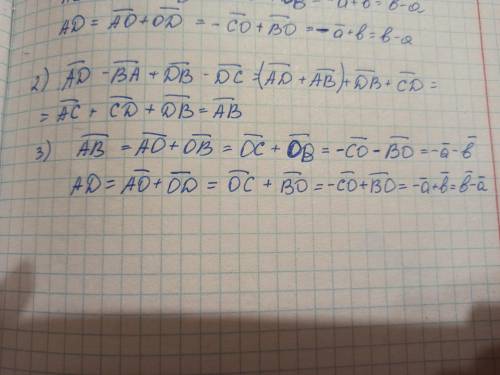 = -a+b = b-a
AD = A̅O̅ + O̅D̅ = - C̅O̅ + B̅O̅ = - a̅ + b = b-a
2) A̅D̅ - B̅A̅ + D̅B̅ - D̅C̅ = (A̅D̅ + A̅B̅) + D̅B̅ + C̅D̅ =
= A̅C̅ + C̅D̅ + D̅B̅ = A̅B̅
3) A̅B̅ = A̅O̅ + O̅B̅ = O̅C̅ + O̅B̅ = -C̅O̅ - B̅O̅ = -a̅ - b̅
AD = A̅O̅ + O̅D̅ = O̅C̅ + B̅O̅ = -C̅O̅ + B̅O̅ = -a̅ + b̅ = b̅ - a̅